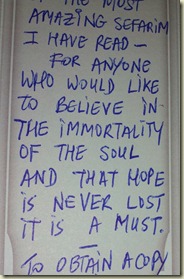 THE MOST
AMAZING SEFARIM
I HAVE READ —
FOR ANYONE
WHO WOULD LIKE
TO BELIEVE IN
THE IMMORTALITY
OF THE SOUL
AND THAT HOPE
IS NEVER LOST
IT IS A MUST.
—
TO OBTAIN A COPY